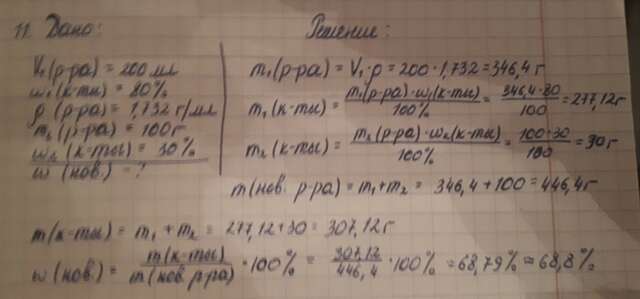 11. Дано: Решение:
V₁(р-ра) = 200 мл
ω₁(к-ты) = 80%
ρ (р-ра) = 1,732 г/мл
m₂(р-ра) = 100г
ω₂(к-ты) = 30%
ω (нов.) = ?
m₁(р-ра) = V₁·ρ = 200·1,732 = 346,4 г
m₁(к-ты) = m₁(р-ра)·ω₁(к-ты)/100% = 346,4·80/100 = 277,12г
m₂(к-ты) = m₂(р-ра)·ω₂(к-ты)/100% = 100·30/100 = 30г
m(нов. р-ра) = m₁+m₂ = 346,4+100 = 446,4г
m(к-ты) = m₁+m₂ = 277,12+30 = 307,12г
ω(нов.) = m(к-ты)/m(нов.р-ра) · 100% = 307,12/446,4 · 100% = 68,79% ≈ 68,8%